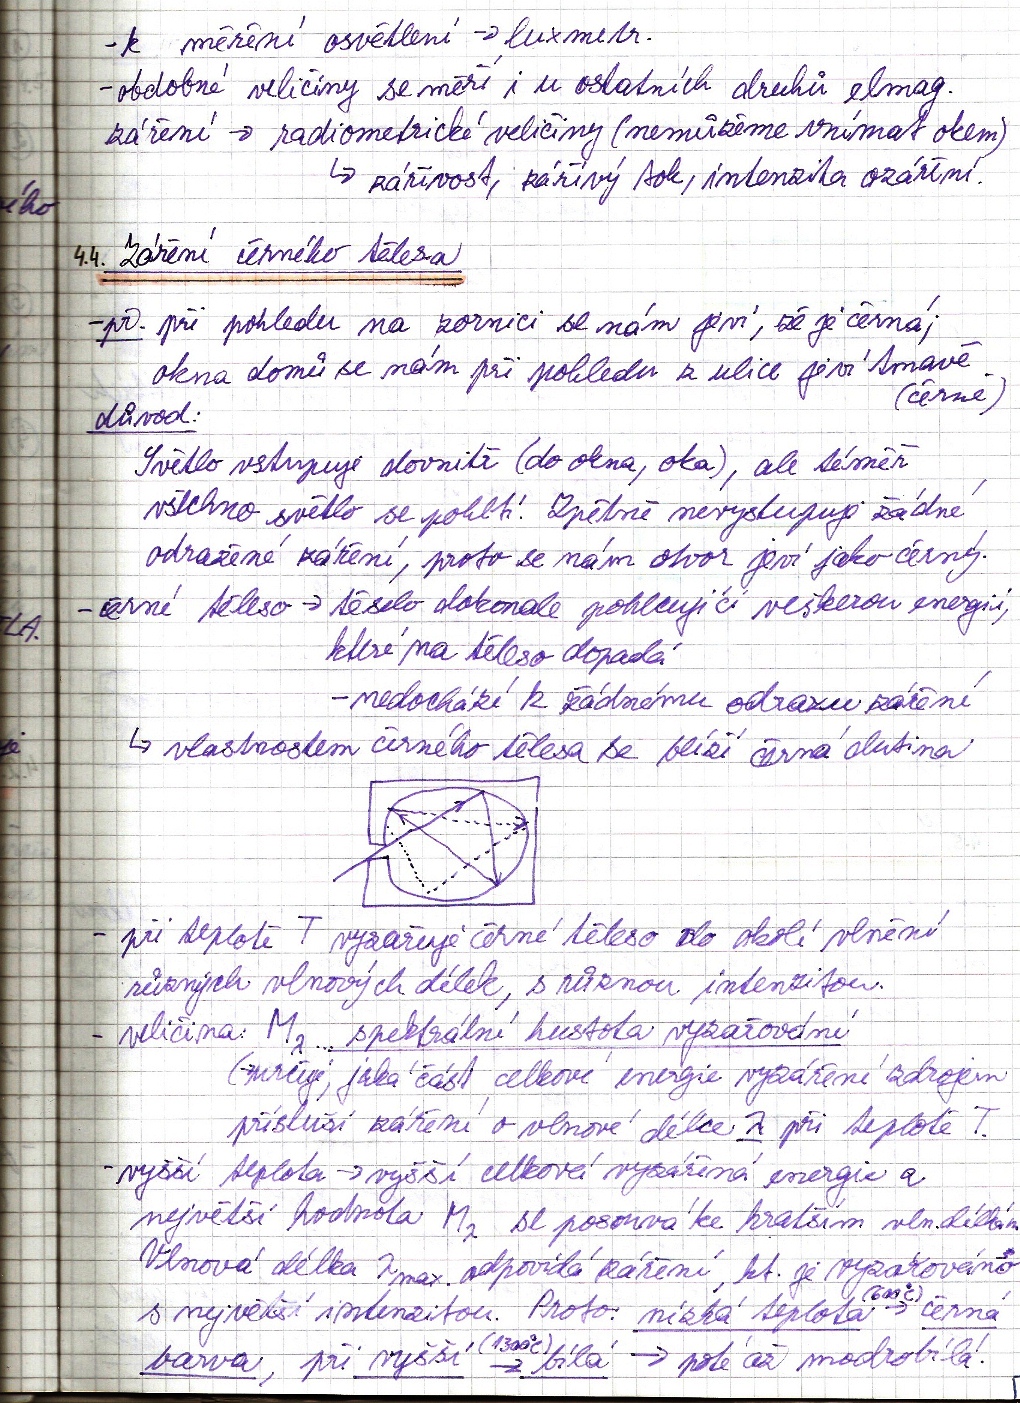 - k měření osvětlení → luxmetr.
- obdobné veličiny se měří i u ostatních druhů elmag.
záření → radiometrické veličiny (nemůžeme vnímat okem)
↳ zářivost, zářivý tok, intenzita ozáření.
ého
4.4. Záření černého tělesa
- př. při pohledu na zornici se nám jeví, že je černá;
okna domů se nám při pohledu z ulice jeví tmavě
(černě)
důvod:
Světlo vstupuje dovnitř (do okna, oka), ale téměř
všechno světlo se pohltí. Zpětně nevystupuje žádné
odražené záření, proto se nám otvor jeví jako černý.
- černé těleso → těleso dokonale pohlcující veškerou energii,
které na těleso dopadá
- nedochází k žádnému odrazu záření
↳ vlastnostem černého tělesa se blíží černá dutina
- při teplotě T vyzařuje černé těleso do okolí vlnění
různých vlnových délek, s různou intenzitou.
- veličina: Mλ ... spektrální hustota vyzařování
(určuje, jaká část celkové energie vyzáření zdrojem
přísluší záření o vlnové délce λ při teplotě T.
- vyšší teplota → vyšší celková vyzářená energie a
největší hodnota Mλ se posouvá ke kratším vln. délkám
Vlnová délka λmax. odpovídá záření, kt. je vyzařováno
s největší intenzitou. Proto: nízká teplota (600°C) → černá
barva, při vyšší (1300°C) → bílá → poté až modrobílá.